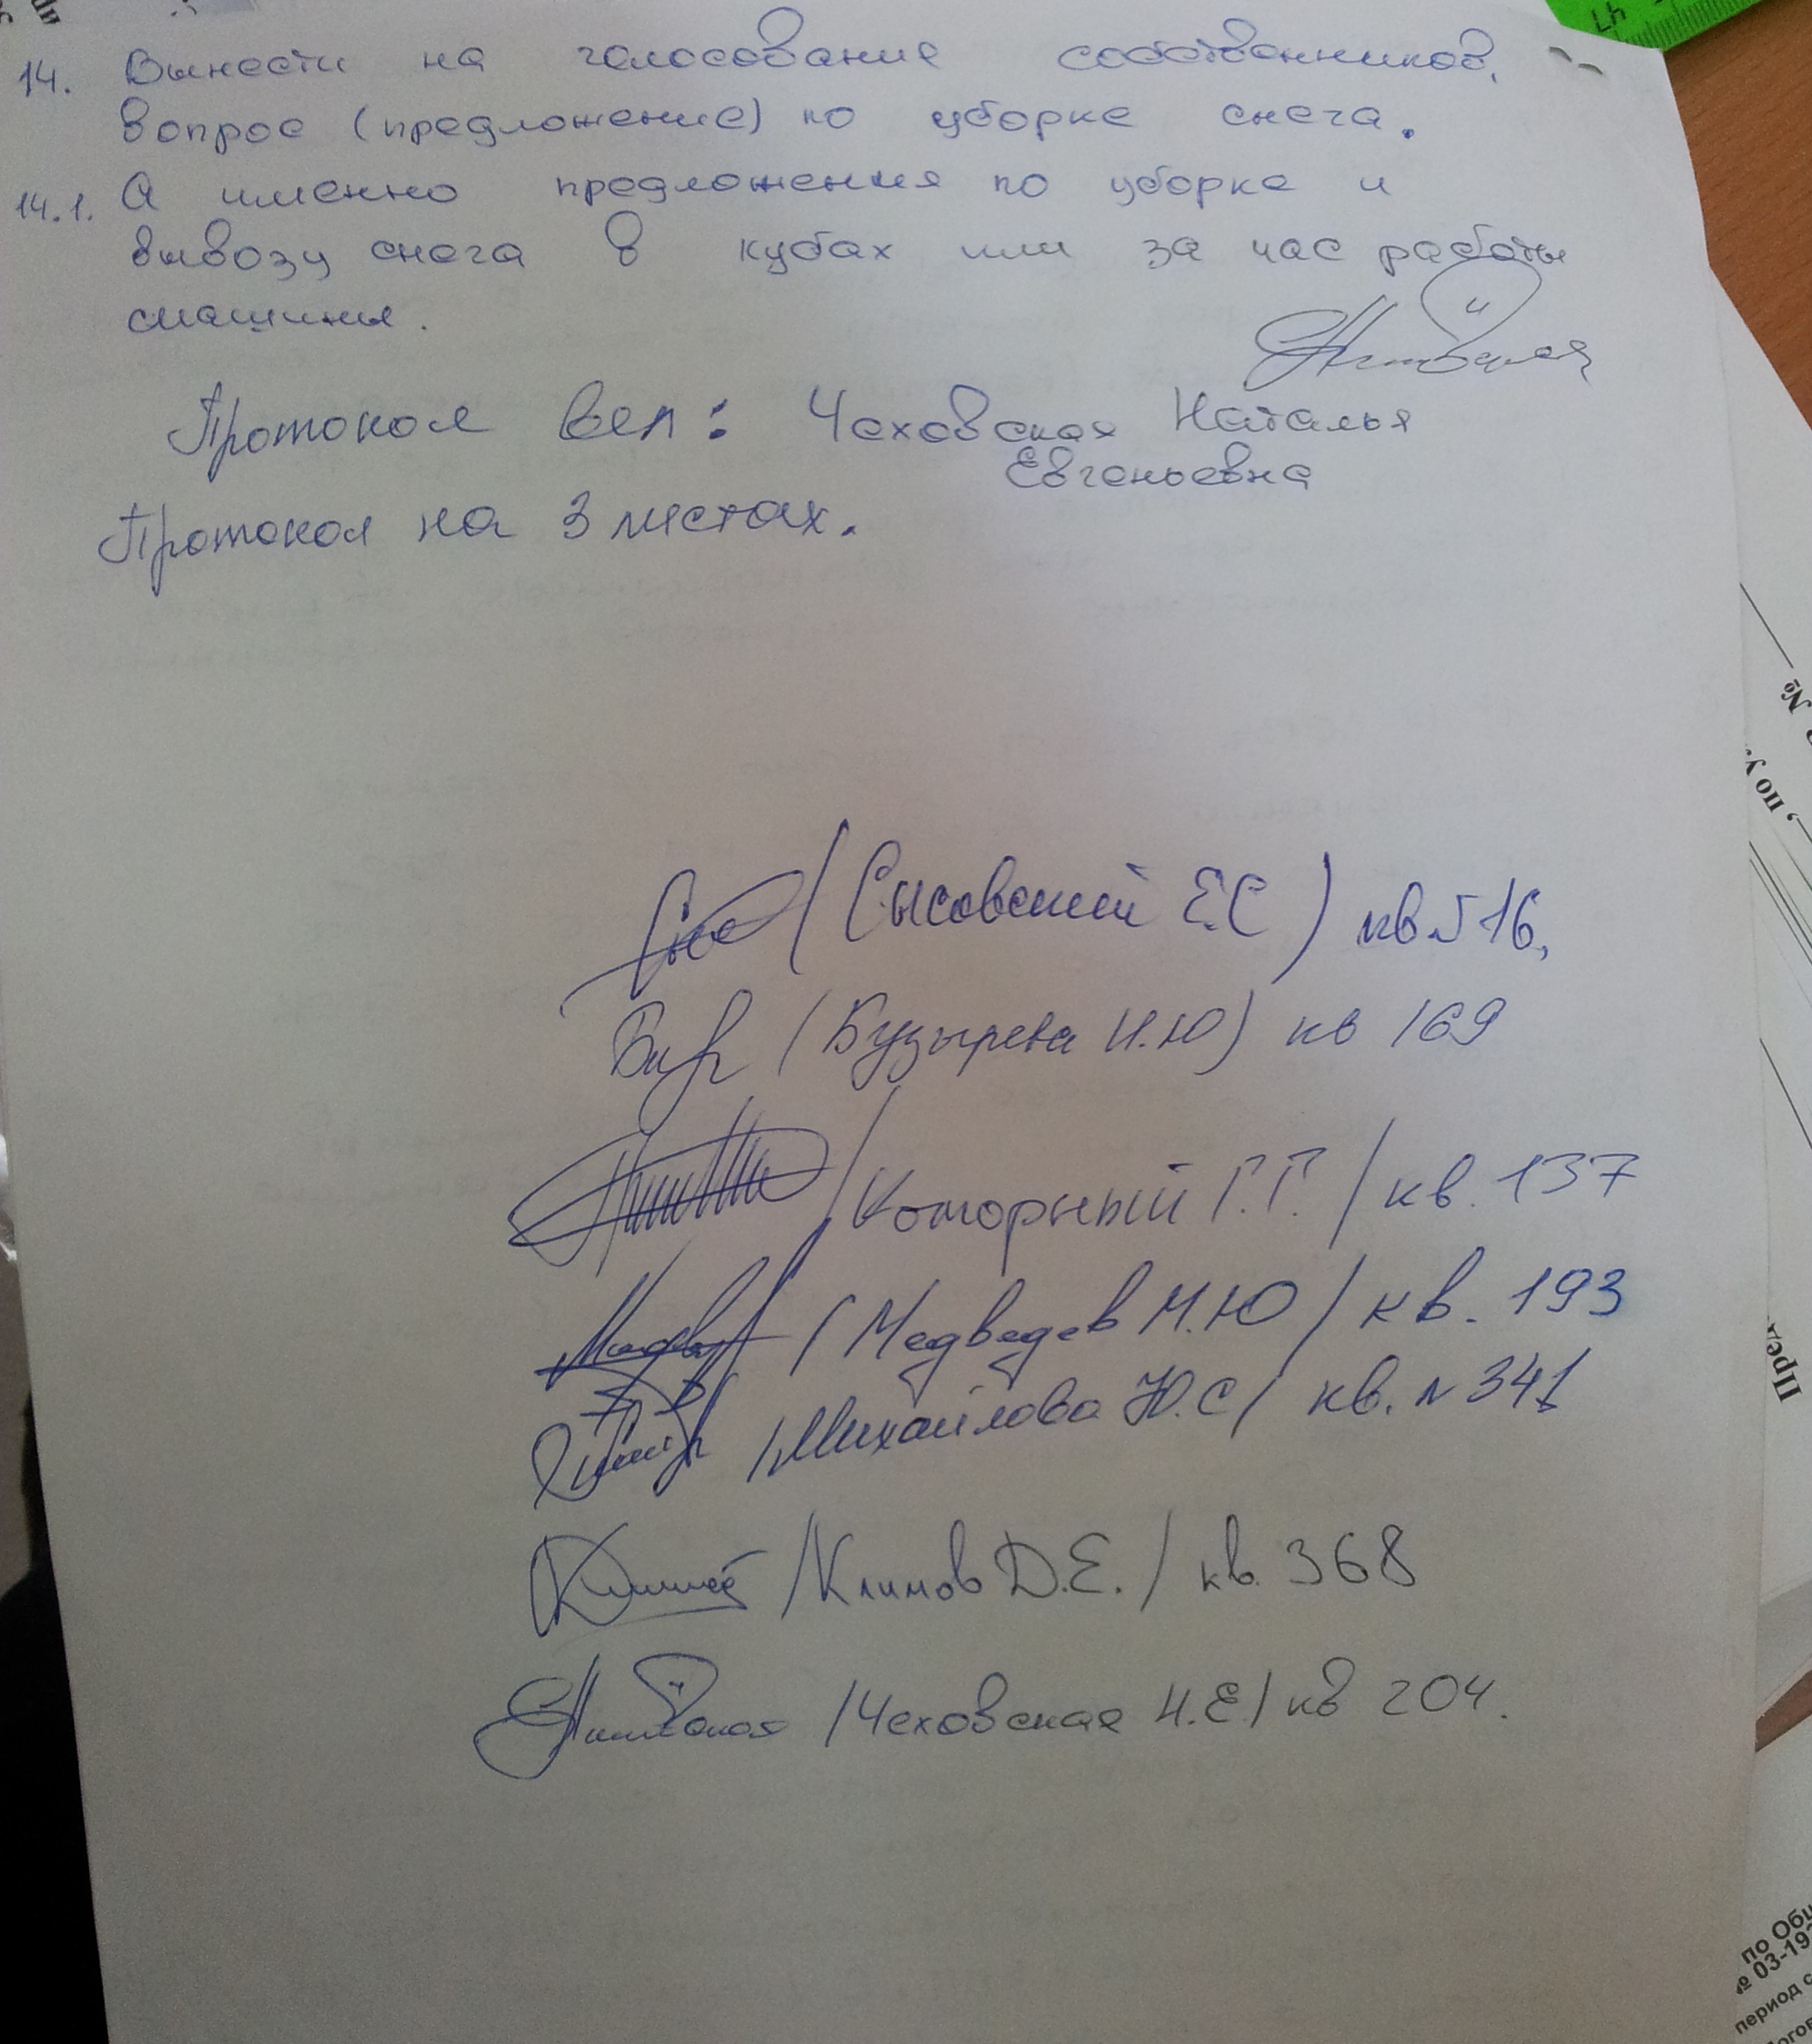 14. Вынести на голосование собственников,
вопрос (предложение) по уборке снега.
14.1. А именно предложения по уборке и
вывозу снега в кубах или за час работы
смашины.
Протокол вел: Чеховская Наталья
Евгеньевна
Протокол на 3 листах.
(Сысовский Е.С) кв №16,
(Бузырева И.Ю) кв 169
/Которный Г.Г./ кв. 137
/Медведев М.Ю/ кв. 193
/Михайлова Ю.С/ кв. №341
/Климов Д.Е./ кв. 368
/Чеховская Н.Е/ кв 204.
№
, по у
Пред
по Общ
№ 03-19
период с